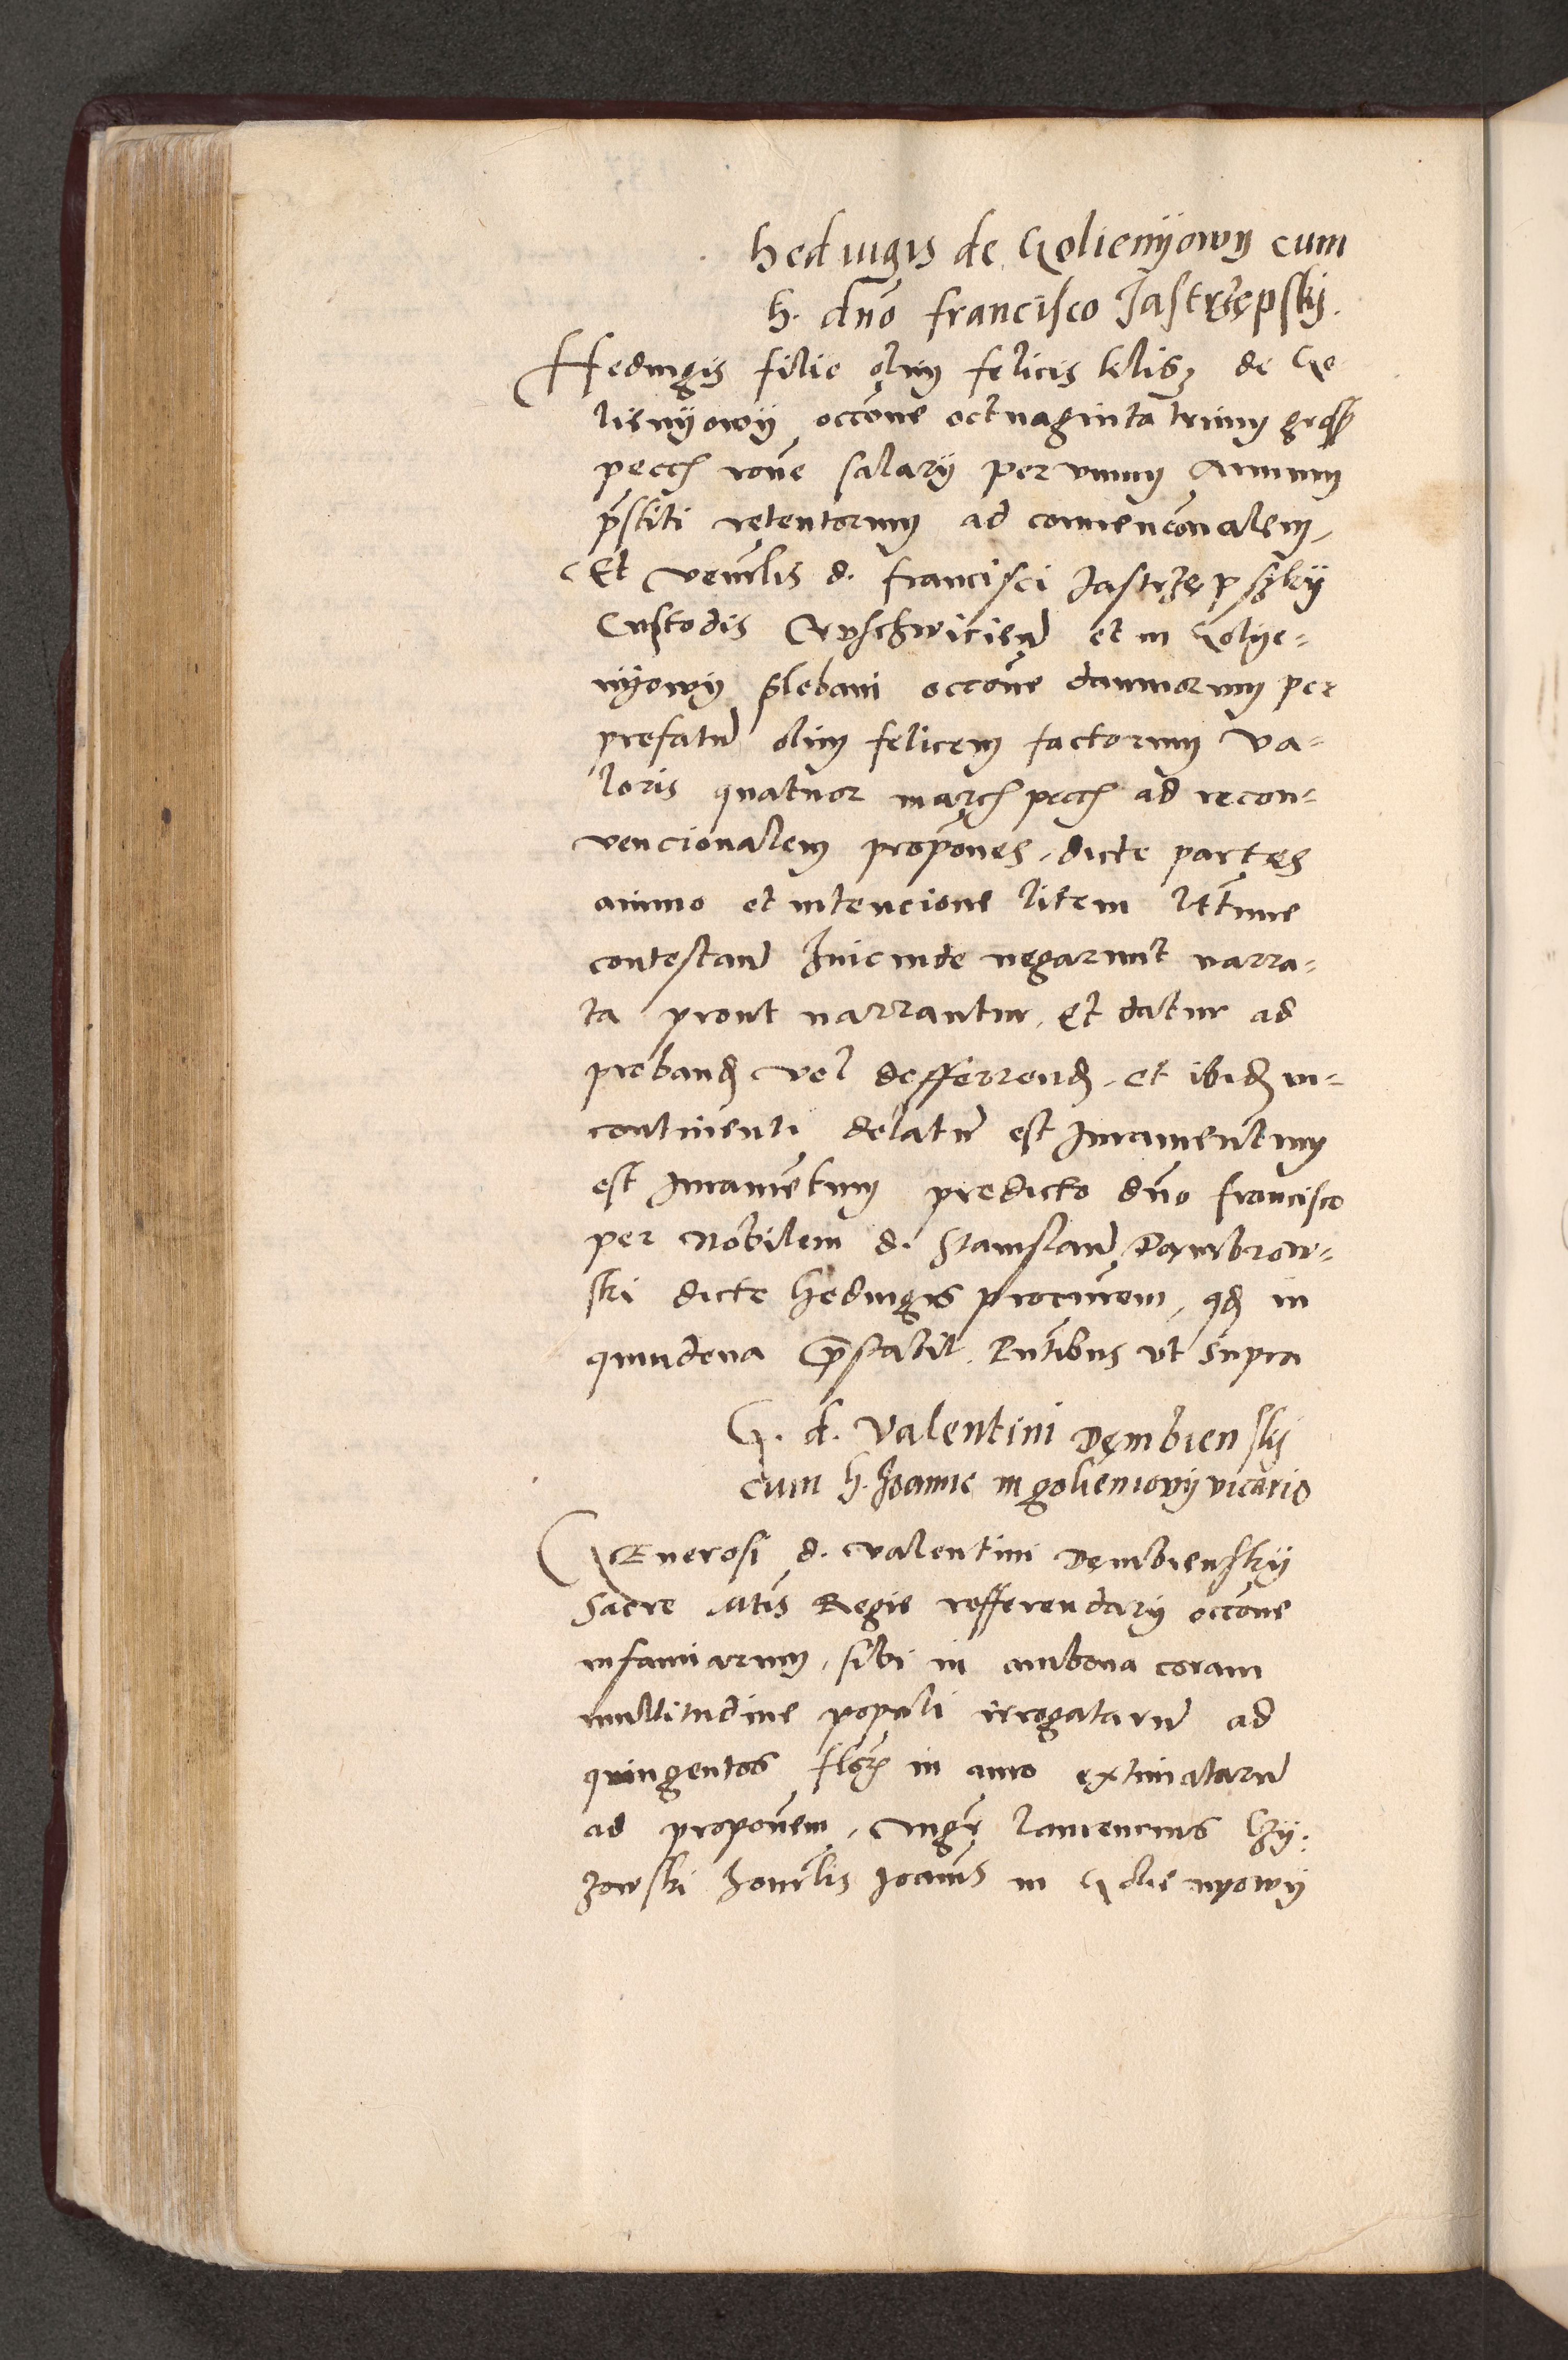 heduigis de Golienÿowÿ cum
h. dno francisco Jastrzępskÿ.
Heduigis filie olim felicis klis de Go
lienÿowÿ occone octuaginta trium gross
pecc rone salarÿ per vnum Annum
pstiti retentorum ad conuenconalem,
Et venrlis d. francisci Jastrzępskÿ
Custodis Cruschwicien et in Golye-
nÿowÿ plebani occone damnorum per
prefatu olim felicem factorum va-
loris quatuor marc pecc ad recon-
vencionalem propones, dicte partes
animo et intencione litem lttime
contestan hincinde negarunt narra-
ta prout narrantur, et datur ad
proband vel defferrend, et ibid in-
continenti delatu est Juramentum
est Juramentum predicto dno francisco
per Nobilem d. Stanislau Dambrow-
ski dicte heduigis procurem, qd in
quindena pstabit. Pntibus vt supra
G. d. Valentini Dęmbienskÿ
cum h. Joanne in golieniowÿ vicario
GEnerosi d. Valentini Dęmbienskÿ
Sacre Mtis Regie refferendarÿ occone
infamiarum, sibi in ambona coram
multitudine populi irrogataru ad
quingentos flor in auro extimataru
ad proponem, Mgr laurencius
zowski honrlis Joannis in Golienyowÿ